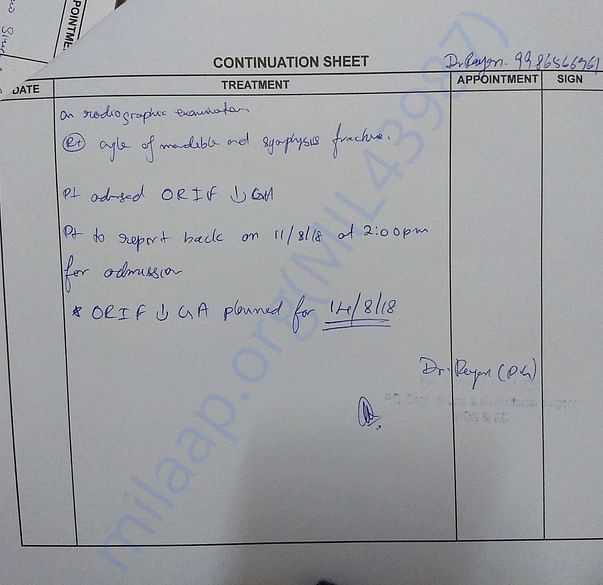 POINTME
CONTINUATION SHEET
Dr Rayan. 9986566961
DATE TREATMENT APPOINTMENT SIGN
On radiographic examination.
(Rt) angle of mandible and symphysis fracture.
Pt advised ORIF ↓ GA
Pt to report back on 11/8/18 at 2:00pm
for admission
* ORIF ↓ GA planned for 14/8/18
Dr. Rayan (PG)
milaap.org(MIL43987)